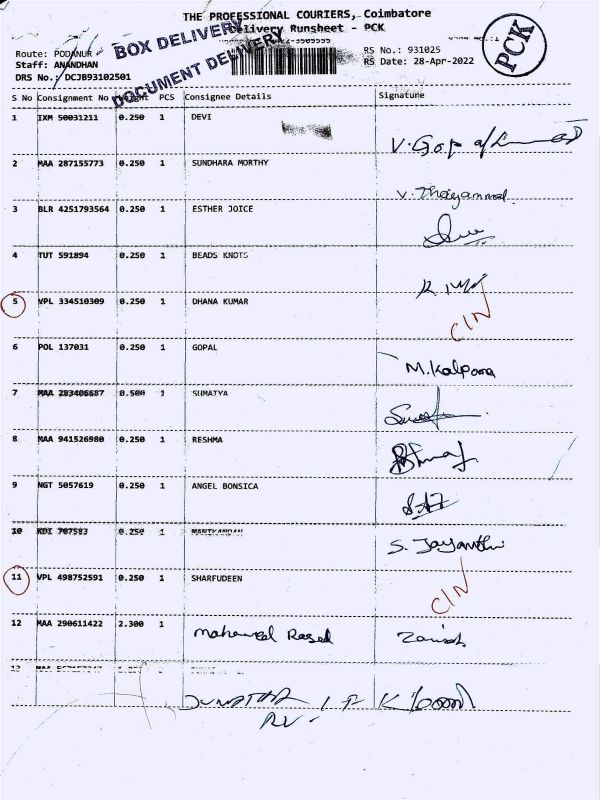 THE PROFESSIONAL COURIERS, Coimbatore
Delivery Runsheet - PCK
BOX DELIVERY
DOCUMENT DELIVERY
PCK
Route: PODANUR -
Staff: ANANDHAN
DRS No.: DCJB93102501
RS No.: 931025
RS Date: 28-Apr-2022
S No Consignment No PCS Consignee Details Signature
1 IXM 50031211 0.250 1 DEVI
2 MAA 287155773 0.250 1 SUNDHARA MORTHY V. Thaiyammal
3 BLR 4251793564 0.250 1 ESTHER JOICE
4 TUT 591894 0.250 1 BEADS KNOTS
5 VPL 334510309 0.250 1 DHANA KUMAR CIN
6 POL 137031 0.250 1 GOPAL M. Kalpana
7 MAA 283406687 0.500 1 SUMATYA
8 MAA 941526980 0.250 1 RESHMA
9 NGT 5057619 0.250 1 ANGEL BONSICA
10 KDI 707583 0.250 1 MANIKANDAN S. Jayanthi
11 VPL 498752591 0.250 1 SHARFUDEEN CIN
12 MAA 290611422 2.300 1